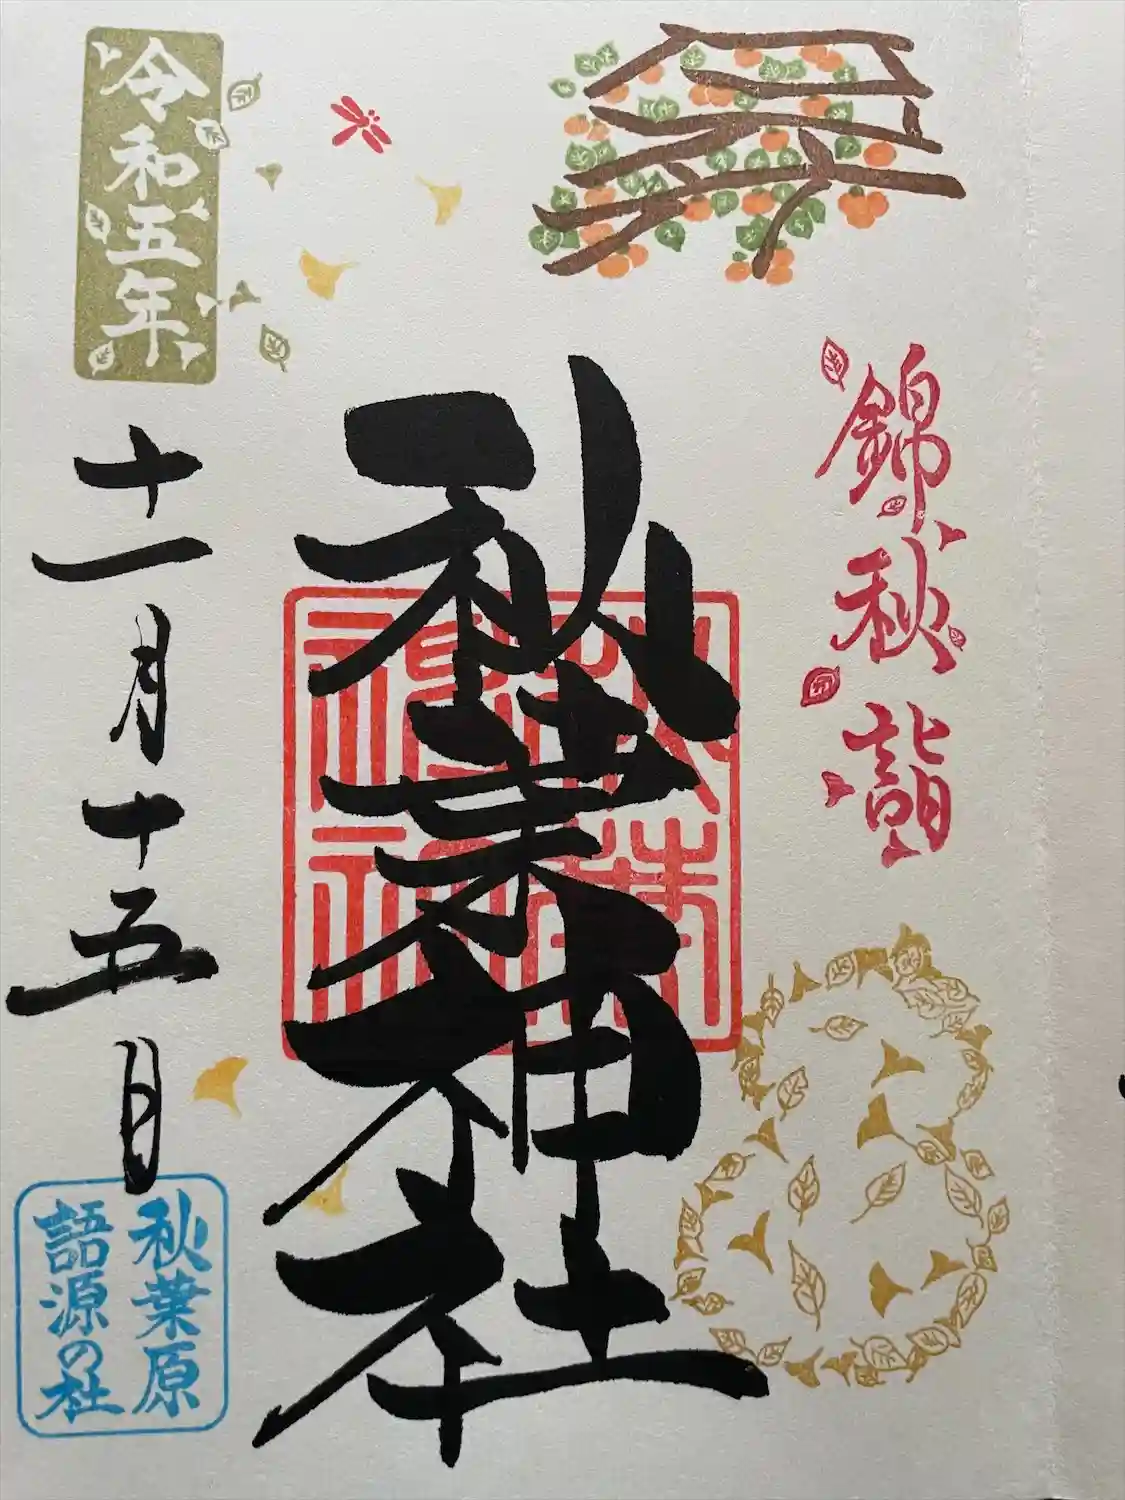 錦秋詣
秋葉神社
秋葉神社
令和五年
十一月十五日
秋葉原
語源の社